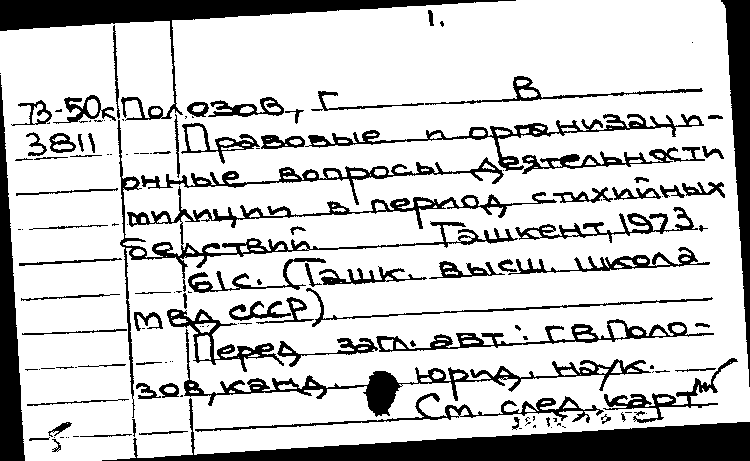 1.
73-50к Полозов, Г В
3811 Правовые и организаци-
онные вопросы деятельности
милиции в период стихийных
бедствий. Ташкент, 1973.
61с. (Ташк. высш. школа
МВД СССР).
Перед загл. авт.: Г.В.Поло-
зов, канд. юрид. наук.
См. след. карт.